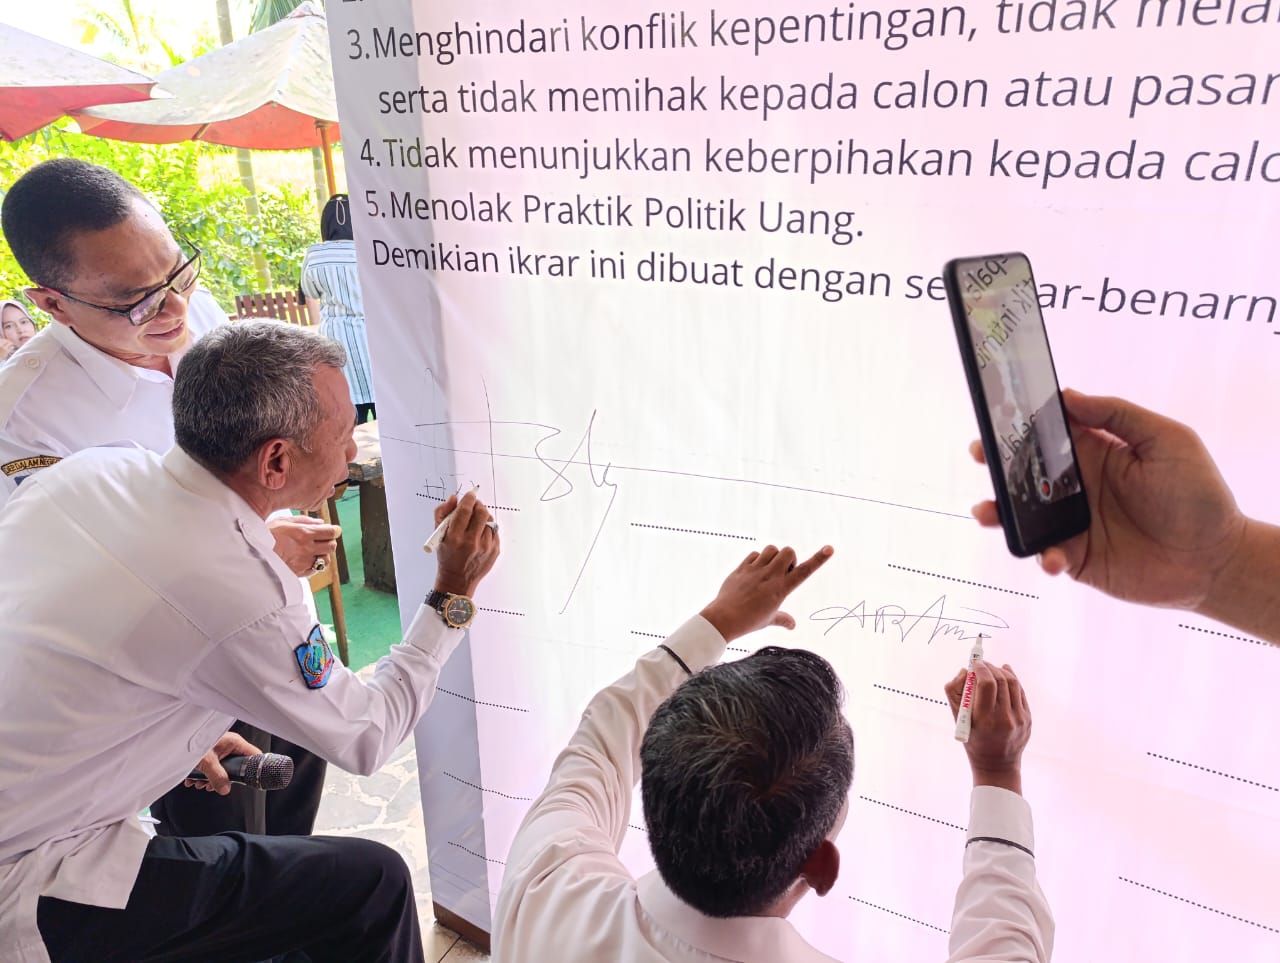 3.Menghindari konflik kepentingan, tidak
serta tidak memihak kepada calon atau
4.Tidak menunjukkan keberpihakan kepada
5.Menolak Praktik Politik Uang.
Demikian ikrar ini dibuat dengan
SNOWMAN